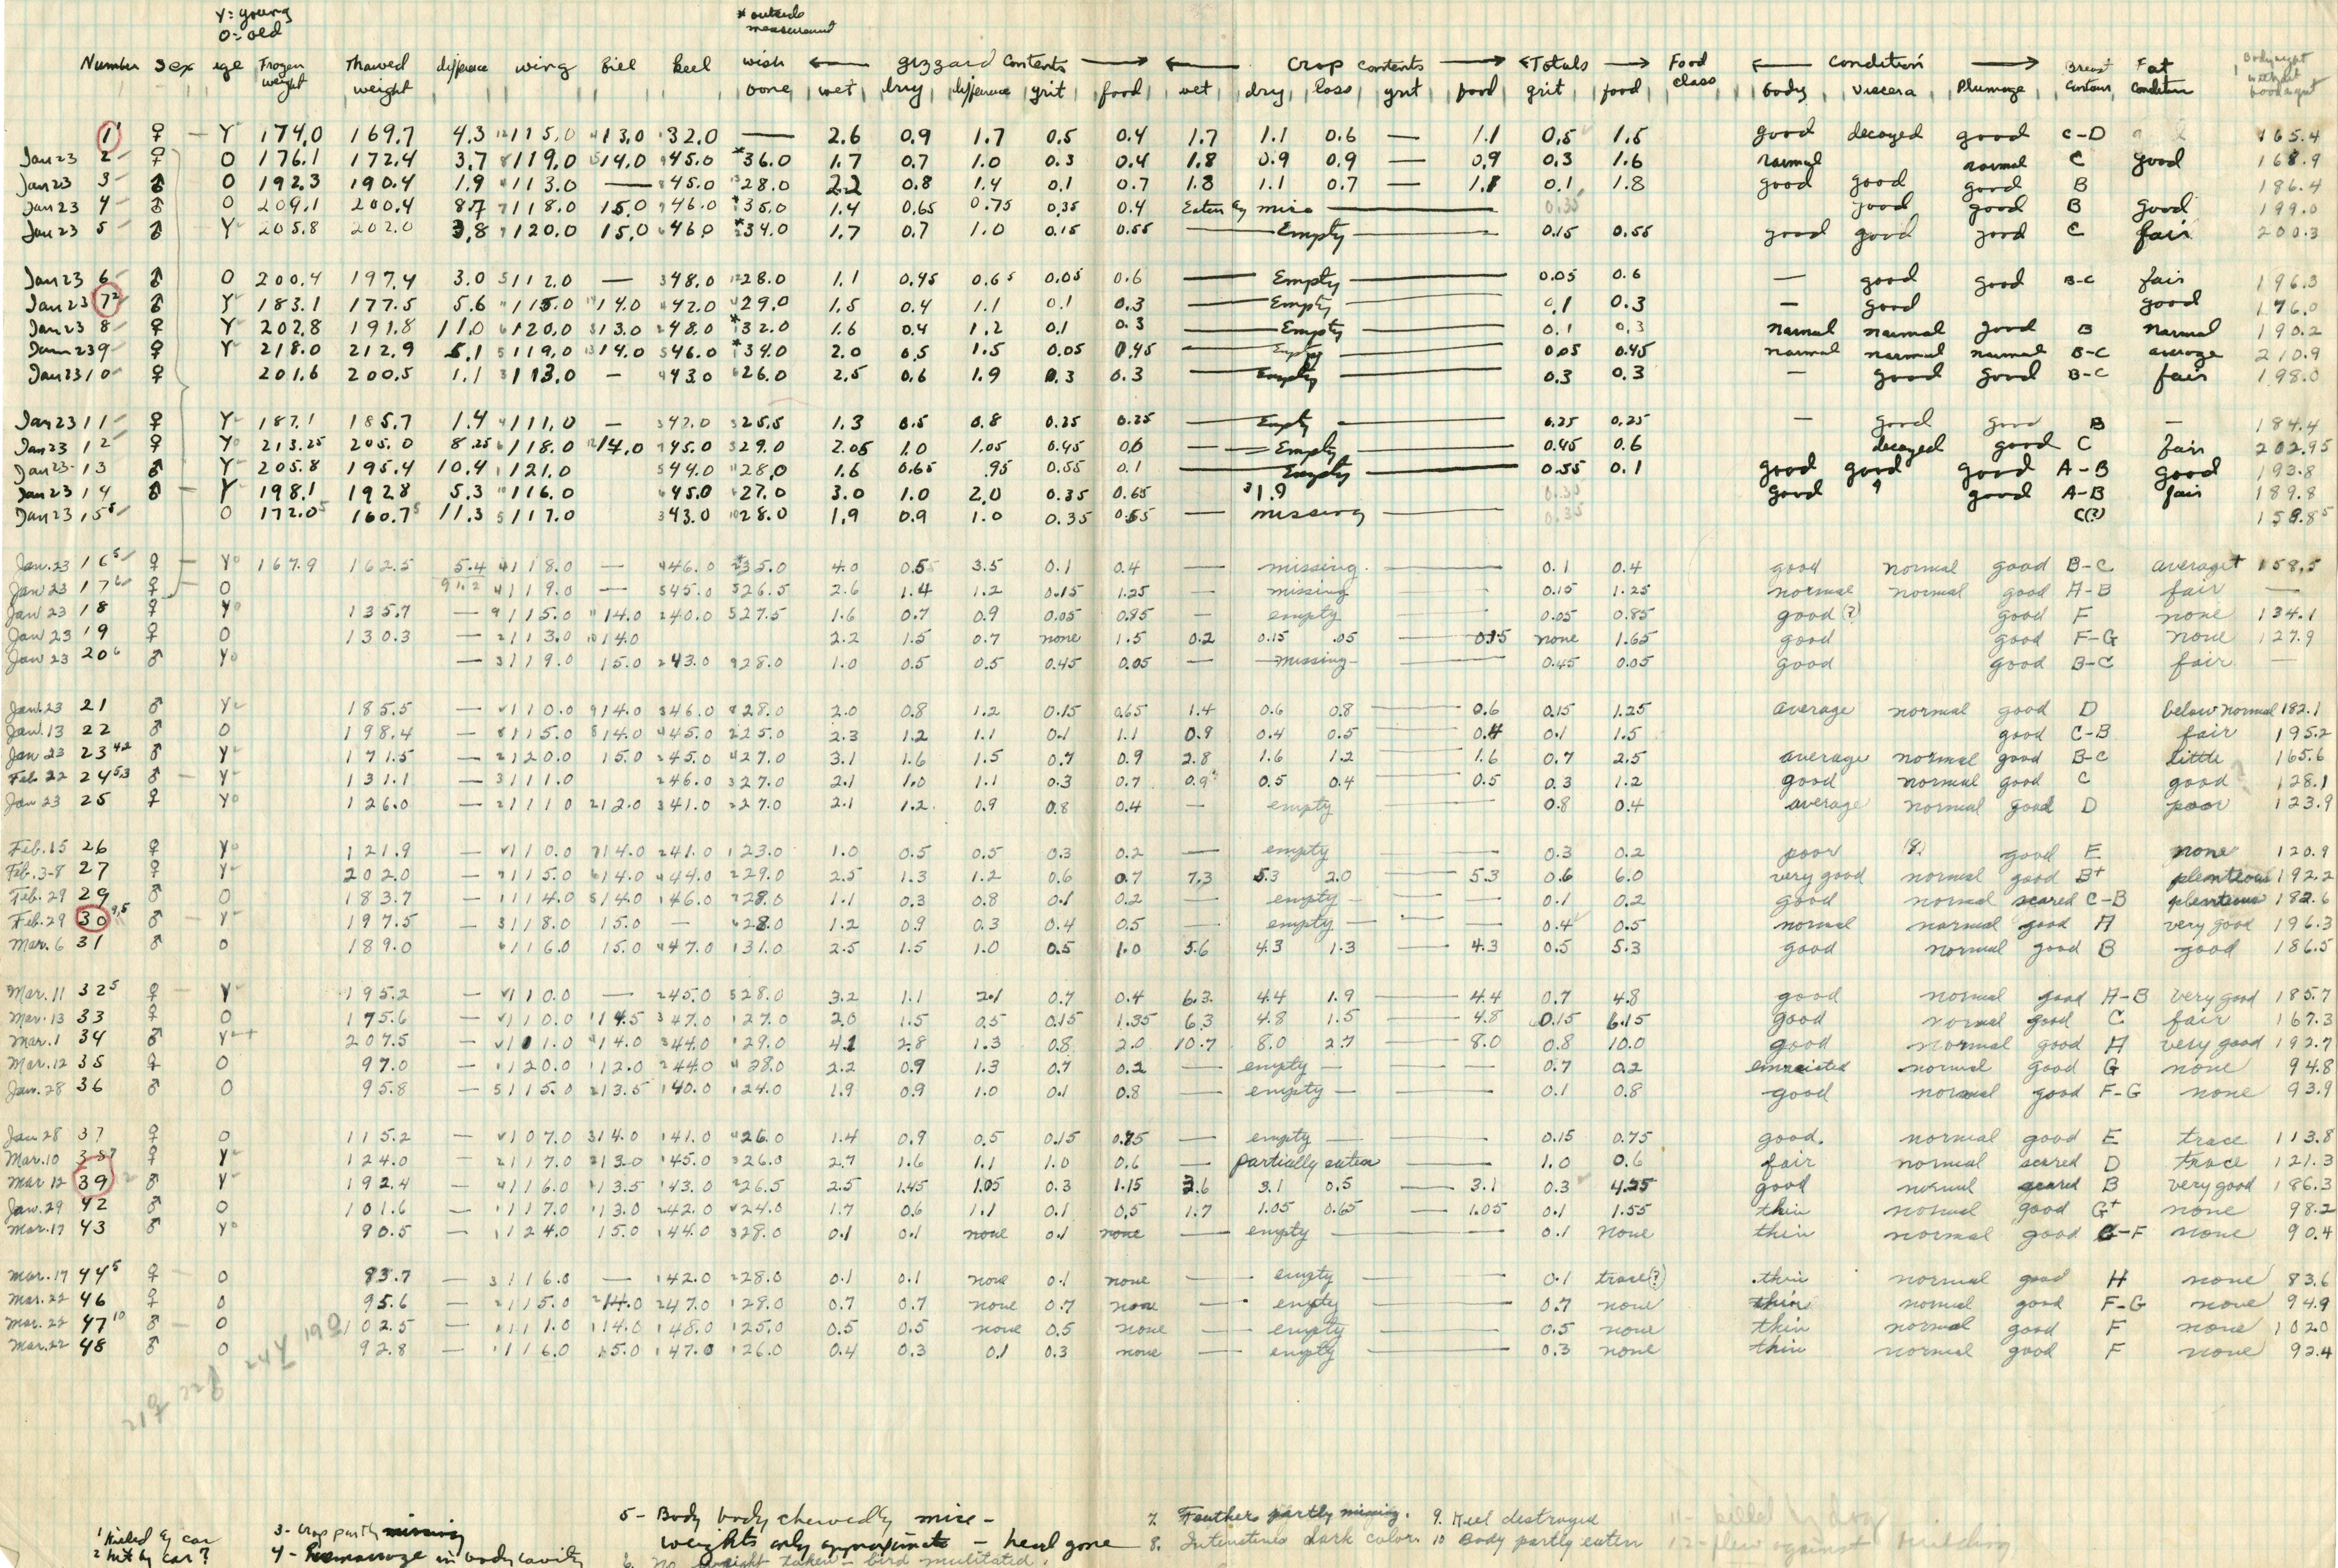 Y = young
O = old
* outside measurement
Number sex age Frozen weight Thawed weight difference wing bill keel wish bone ← gizzard contents → ← Crop contents → ← Totals → Food class ← Condition → Breast Contour Fat Condition Body weight without food & grit
wet dry difference grit food wet dry loss grit food grit food body viscera Plumage
1¹ ♀ — Y 174.0 169.7 4.3 115.0 13.0 32.0 — 2.6 0.9 1.7 0.5 0.4 1.7 1.1 0.6 — 1.1 0.5 1.5 good decayed good C-D 165.4
Jan 23 2 ♀ O 176.1 172.4 3.7 119.0 14.0 45.0 *36.0 1.7 0.7 1.0 0.3 0.4 1.8 0.9 0.9 — 0.9 0.3 1.6 normal normal C good 168.9
Jan 23 3 ♂ O 192.3 190.4 1.9 113.0 — 45.0 28.0 2.2 0.8 1.4 0.1 0.7 1.8 1.1 0.7 — 1.1 0.1 1.8 good good good B 186.4
Jan 23 4 ♂ O 209.1 200.4 8.7 118.0 15.0 46.0 *35.0 1.4 0.65 0.75 0.35 0.4 Eaten by mice — 0.35 good good B good 199.0
Jan 23 5 ♂ Y 205.8 202.0 3.8 120.0 15.0 46.0 *34.0 1.7 0.7 1.0 0.15 0.55 — Empty — 0.15 0.55 good good good C fair 200.3
Jan 23 6 ♂ O 200.4 197.4 3.0 112.0 — 48.0 28.0 1.1 0.45 0.65 0.05 0.6 — Empty — 0.05 0.6 — good good B-C fair 196.3
Jan 23 7² ♂ Y 183.1 177.5 5.6 115.0 14.0 42.0 29.0 1.5 0.4 1.1 0.1 0.3 — Empty — 0.1 0.3 — good good 176.0
Jan 23 8 ♀ Y 202.8 191.8 11.0 120.0 13.0 48.0 *32.0 1.6 0.4 1.2 0.1 0.3 — Empty — 0.1 0.3 normal normal good B normal 190.2
Jan 23 9 ♀ Y 218.0 212.9 5.1 119.0 14.0 46.0 *34.0 2.0 0.5 1.5 0.05 0.45 — Empty — 0.05 0.45 normal normal normal B-C average 210.9
Jan 23 10 ♀ 201.6 200.5 1.1 113.0 — 43.0 26.0 2.5 0.6 1.9 0.3 0.3 — Empty — 0.3 0.3 — good good B-C fair 198.0
Jan 23 11 ♀ Y 187.1 185.7 1.4 111.0 — 42.0 25.5 1.3 0.5 0.8 0.25 0.25 — Empty — 0.25 0.25 — good good B — 184.4
Jan 23 12 ♀ Yo 213.25 205.0 8.25 118.0 14.0 45.0 29.0 2.05 1.0 1.05 0.45 0.6 — Empty — 0.45 0.6 decayed good C fair 202.95
Jan 23 13 ♂ Y 205.8 195.4 10.4 121.0 44.0 28.0 1.6 0.65 .95 0.55 0.1 — Empty — 0.55 0.1 good good good A-B good 193.8
Jan 23 14 ♂ — Y 198.1 192.8 5.3 116.0 45.0 27.0 3.0 1.0 2.0 0.35 0.65 — ³1.9 0.35 good ? good A-B fair 189.8
Jan 23 15⁵ O 172.0⁵ 160.7⁵ 11.3 117.0 43.0 28.0 1.9 0.9 1.0 0.35 0.55 — missing — 0.35 C(?) 158.8⁵
Jan. 23 16⁵ ♀ — Yo 167.9 162.5 5.4 118.0 — 46.0 *35.0 4.0 0.5 3.5 0.1 0.4 — missing — 0.1 0.4 good normal good B-C average+ 158.5
Jan 23 17⁶ ♀ — O 91.2 119.0 — 45.0 26.5 2.6 1.4 1.2 0.15 1.25 — missing — 0.15 1.25 normal normal good A-B fair —
Jan 23 18 ♀ Yo 135.7 — 115.0 14.0 40.0 27.5 1.6 0.7 0.9 0.05 0.85 — empty — 0.05 0.85 good (?) good F none 134.1
Jan 23 19 ♀ O 130.3 — 113.0 14.0 2.2 1.5 0.7 none 1.5 0.2 0.15 .05 — 0.15 none 1.65 good good F-G none 127.9
Jan 23 20⁶ ♂ Yo — 119.0 15.0 43.0 28.0 1.0 0.5 0.5 0.45 0.05 — missing — 0.45 0.05 good good B-C fair —
Jan. 23 21 ♂ Y 185.5 — 110.0 14.0 46.0 28.0 2.0 0.8 1.2 0.15 0.65 1.4 0.6 0.8 — 0.6 0.15 1.25 average normal good D below normal 182.1
Jan. 13 22 ♂ O 198.4 — 115.0 14.0 45.0 25.0 2.3 1.2 1.1 0.1 1.1 0.9 0.4 0.5 — 0.4 0.1 1.5 good C-B fair 195.2
Jan 23 23⁴² ♂ Y 171.5 — 120.0 15.0 45.0 27.0 3.1 1.6 1.5 0.7 0.9 2.8 1.6 1.2 — 1.6 0.7 2.5 average normal good B-C little 165.6
Feb. 22 24⁵³ ♂ — Y 131.1 — 111.0 46.0 27.0 2.1 1.0 1.1 0.3 0.7 0.9³ 0.5 0.4 — 0.5 0.3 1.2 good normal good C good ? 128.1
Jan 23 25 ♀ Yo 126.0 — 111.0 12.0 41.0 27.0 2.1 1.2 0.9 0.8 0.4 — empty — 0.8 0.4 average normal good D poor 123.9
Feb. 15 26 ♀ Yo 121.9 — 110.0 14.0 41.0 23.0 1.0 0.5 0.5 0.3 0.2 — empty — 0.3 0.2 poor (8) good E none 120.9
Feb. 3-8 27 ♀ Y 202.0 — 115.0 14.0 44.0 29.0 2.5 1.3 1.2 0.6 0.7 7.3 5.3 2.0 — 5.3 0.6 6.0 very good normal good B+ plenteous 192.2
Feb. 29 29 ♂ O 183.7 — 114.0 14.0 46.0 28.0 1.1 0.3 0.8 0.1 0.2 — empty — 0.1 0.2 good normal scared C-B plenteous 182.6
Feb. 29 30⁹,⁵ ♂ — Y 197.5 118.0 15.0 — 28.0 1.2 0.9 0.3 0.4 0.5 — empty — 0.4 0.5 normal normal good A very good 196.3
Mar. 6 31 ♂ O 189.0 116.0 15.0 47.0 31.0 2.5 1.5 1.0 0.5 1.0 5.6 4.3 1.3 — 4.3 0.5 5.3 good normal good B good 186.5
Mar. 11 32⁵ ♀ — Y 195.2 — 110.0 — 45.0 28.0 3.2 1.1 2.1 0.7 0.4 6.3 4.4 1.9 — 4.4 0.7 4.8 good normal good A-B very good 185.7
Mar. 13 33 ♀ O 175.6 — 110.0 14.5 47.0 27.0 2.0 1.5 0.5 0.15 1.35 6.3 4.8 1.5 — 4.8 0.15 6.15 good normal good C fair 167.3
Mar. 1 34 ♂ Y 207.5 — 101.0 14.0 44.0 29.0 4.1 2.8 1.3 0.8 2.0 10.7 8.0 2.7 — 8.0 0.8 10.0 good normal good A very good 192.7
Mar. 12 35 ♀ O 97.0 — 120.0 12.0 44.0 28.0 2.2 0.9 1.3 0.7 0.2 — empty — 0.7 0.2 emaciated normal good G none 94.8
Jan. 28 36 ♂ O 95.8 — 115.0 13.5 40.0 24.0 1.9 0.9 1.0 0.1 0.8 — empty — 0.1 0.8 good normal good F-G none 93.9
Jan 28 37 ♀ O 115.2 — 107.0 14.0 41.0 26.0 1.4 0.9 0.5 0.15 0.75 — empty — 0.15 0.75 good. normal good E trace 113.8
Mar. 10 38⁷ ♀ Y 124.0 — 117.0 13.0 45.0 26.0 2.7 1.6 1.1 1.0 0.6 — partially eaten — 1.0 0.6 fair normal scared D trace 121.3
Mar 12 39 ♂ Y 192.4 — 116.0 13.5 43.0 26.5 2.5 1.45 1.05 0.3 1.15 3.6 3.1 0.5 — 3.1 0.3 4.25 good normal scared B very good 186.3
Jan. 29 42 ♂ O 101.6 — 117.0 13.0 42.0 24.0 1.7 0.6 1.1 0.1 0.5 1.7 1.05 0.65 — 1.05 0.1 1.55 thin normal good G+ none 98.2
Mar. 17 43 ♂ Yo 90.5 — 124.0 15.0 44.0 28.0 0.1 0.1 none 0.1 none — empty — 0.1 none thin normal good G-F none 90.4
Mar. 17 44⁵ ♀ — O 83.7 — 116.0 — 42.0 28.0 0.1 0.1 none 0.1 none — empty — 0.1 trace(?) thin normal good H none 83.6
Mar. 22 46 ♀ O 95.6 — 115.0 14.0 47.0 29.0 0.7 0.7 none 0.7 none — empty — 0.7 none thin normal good F-G none 94.9
Mar. 22 47¹⁰ ♂ — O 102.5 — 111.0 14.0 48.0 25.0 0.5 0.5 none 0.5 none — empty — 0.5 none thin normal good F none 102.0
Mar. 22 48 ♂ O 92.8 — 116.0 15.0 47.0 26.0 0.4 0.3 0.1 0.3 none — empty — 0.3 none thin normal good F none 92.4
21♀ 22♂ 24Y 19O
1 Killed by car
2 hit by car?
3 - Crop partly missing
4 - Hemorrage in body cavity
5 - Body body chewed by mice -
weights only approximate - head gone
6. No weight taken - bird mutilated.
7. Feathers partly missing.
8. Intestines dark color.
9. Keel destroyed
10 Body partly eaten
11 - killed by dog
12 - flew against building